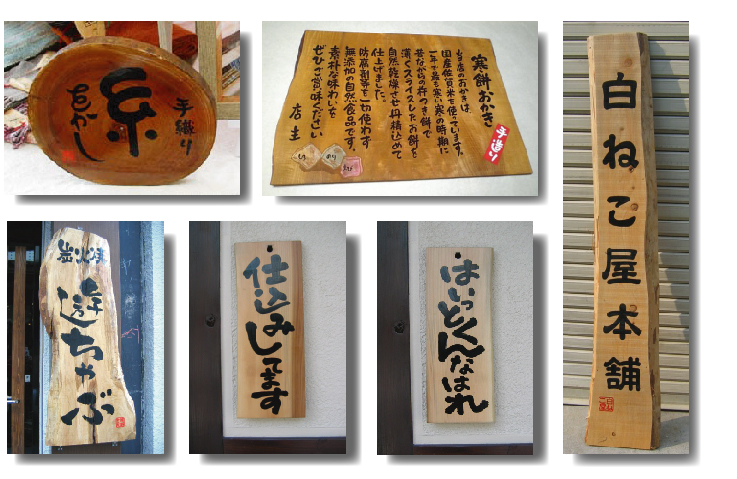 手織り
糸
むかし
寒餅おかき
当店のおかきは、
国産佐賀米を使っています。
一年で最も寒い寒の時期に
昔ながらの杵つき餅で
薄くスライスしたお餅を
自然乾燥させ丹精込めて
仕上げました。
防腐剤等を一切使わず
無添加の自然食品です。
素朴な味わいを
ぜひご賞味ください
店主
手造り
白ねこ屋本舗
炭火焼
ちゃぶ
仕込みしてます
はいっとくんなはれ